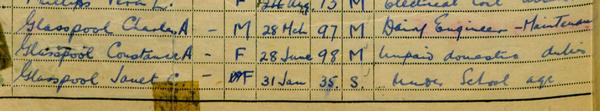 Phillips F 12th Aug. 13 M Electrical
Glasspool Charles A – M 28 Mch 97 M Dairy Engineer – Maintenance
Glasspool Constance A – F 28 June 98 M Unpaid domestic duties
Glasspool Janet C – F 31 Jan 35. S. Under School age